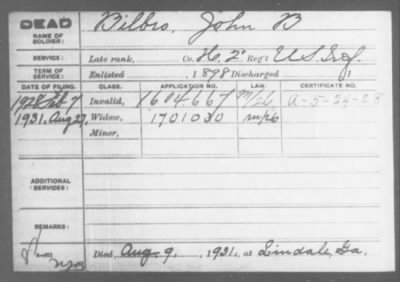 DEAD
NAME OF SOLDIER: Bilbro, John B
SERVICE: Late rank, Co. H. 2" Reg't U S Inf.
TERM OF SERVICE: Enlisted , 1898 Discharged , 1
DATE OF FILING. CLASS. APPLICATION NO. LAW. CERTIFICATE NO.
1928 Feb 7 Invalid, 1604667 A-5-24-28
1931, Aug 27, Widow, 1701030
Minor,
ADDITIONAL SERVICES:
REMARKS:
Died, Aug. 9, 1931, at Lindale, Ga.